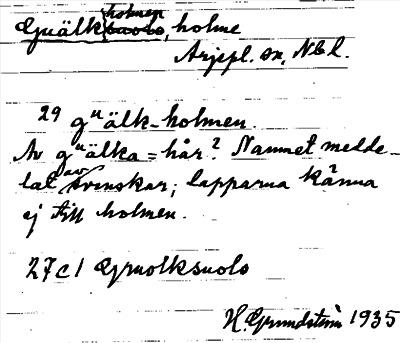 Guälkholmen, holme
Arjepl. sn, Nbl.
29 gᵘälk-holmen.
Av gᵘälka = hår? Namnet medde-
lat av svenskar; lapparna känna
ej till holmen.
27c1 Guolksuolo
H. Grundström 1935